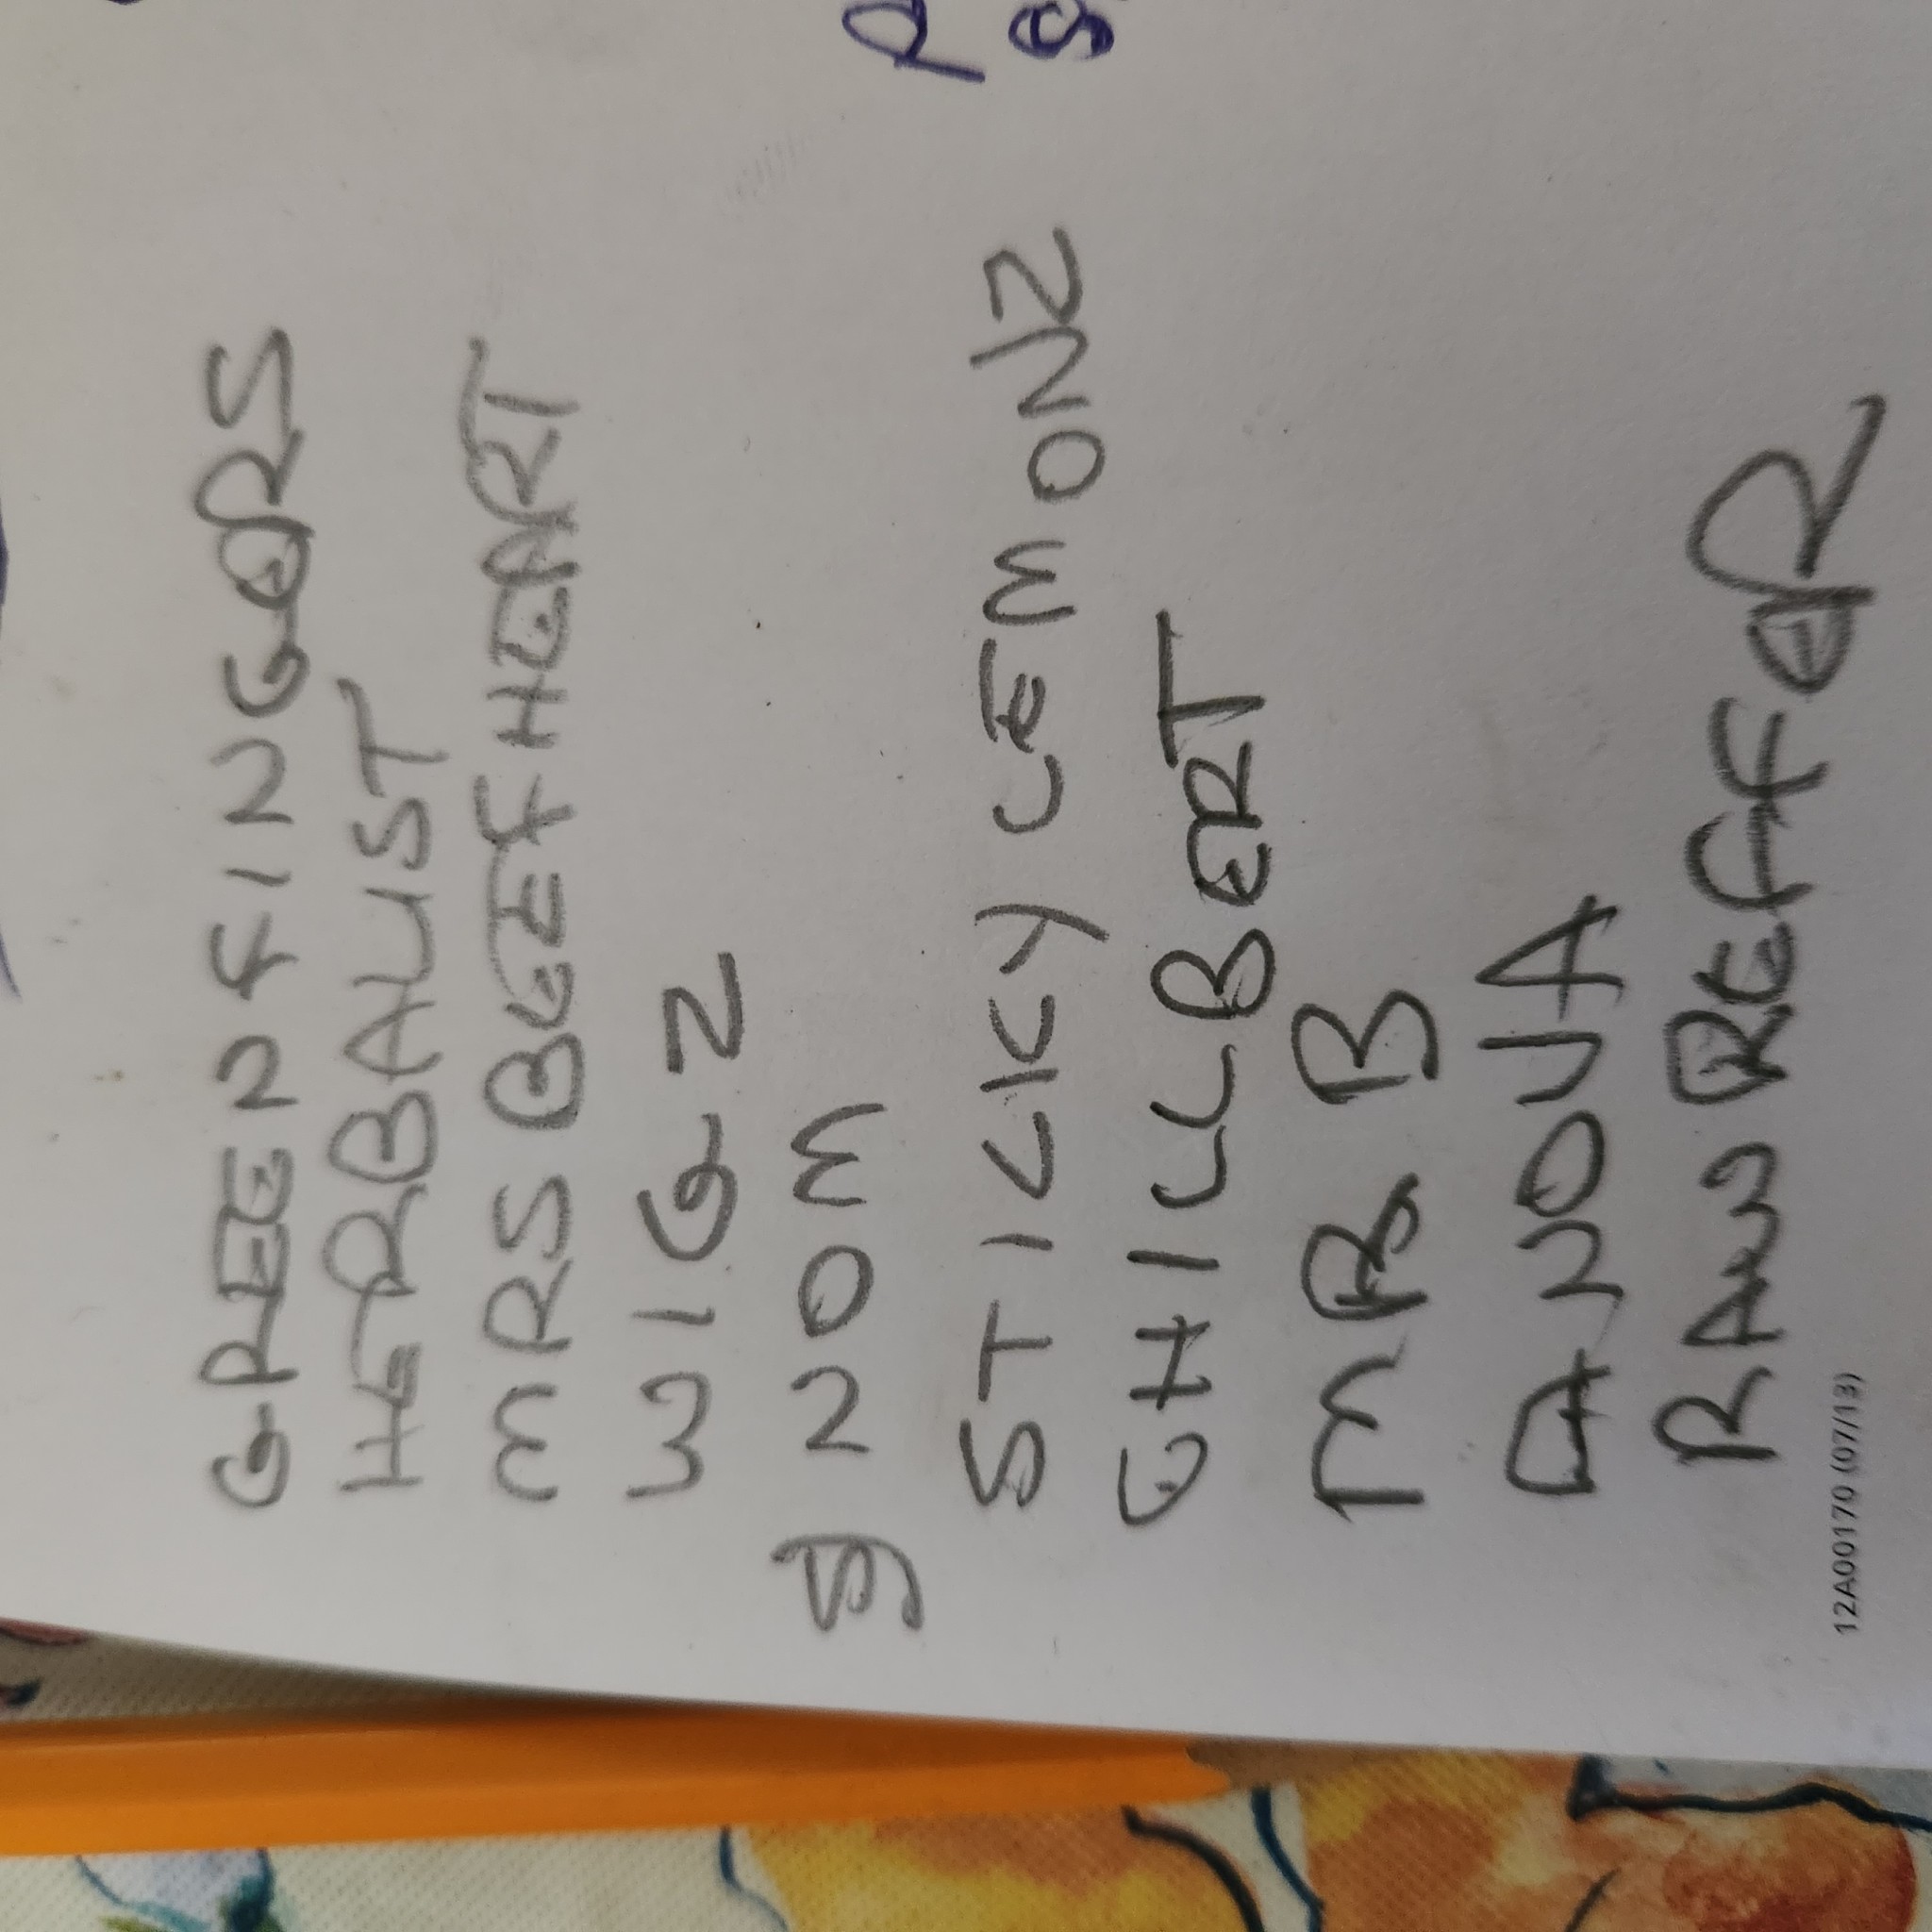 GREENFINGERS
HERBALIST
MRS BEEFHEART
WIGZ
GNOM
STICKY LEMONZ
GHILLBERT
MR B
A NOVA
RAW REEFER
12A00170 (07/13)